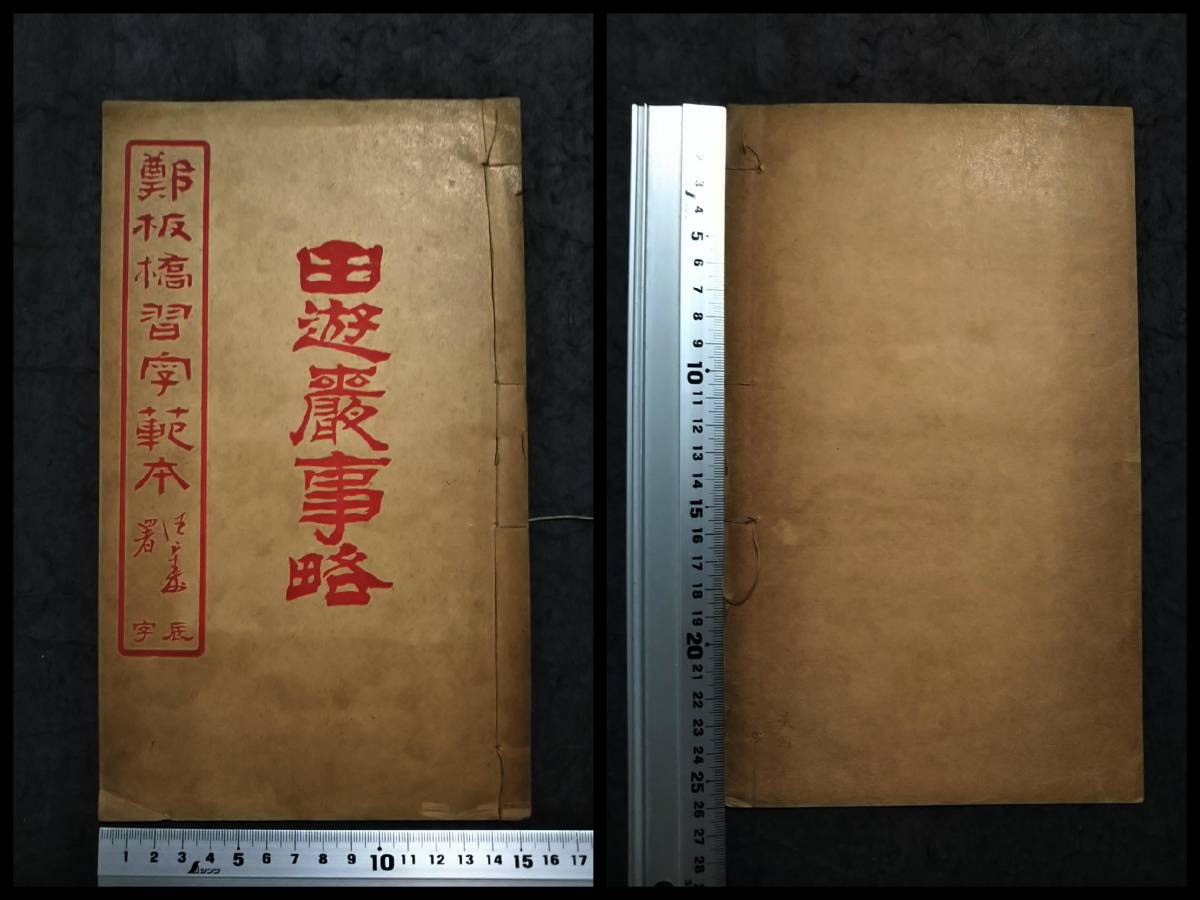 田遊巖事略
鄭板橋習字範本
署
辰字
1 2 3 4 5 6 7 8 9 10 11 12 13 14 15 16 17
シンワ
2 3 4 5 6 7 8 9 10 11 12 13 14 15 16 17 18 19 20 21 22 23 24 25 26 27 28